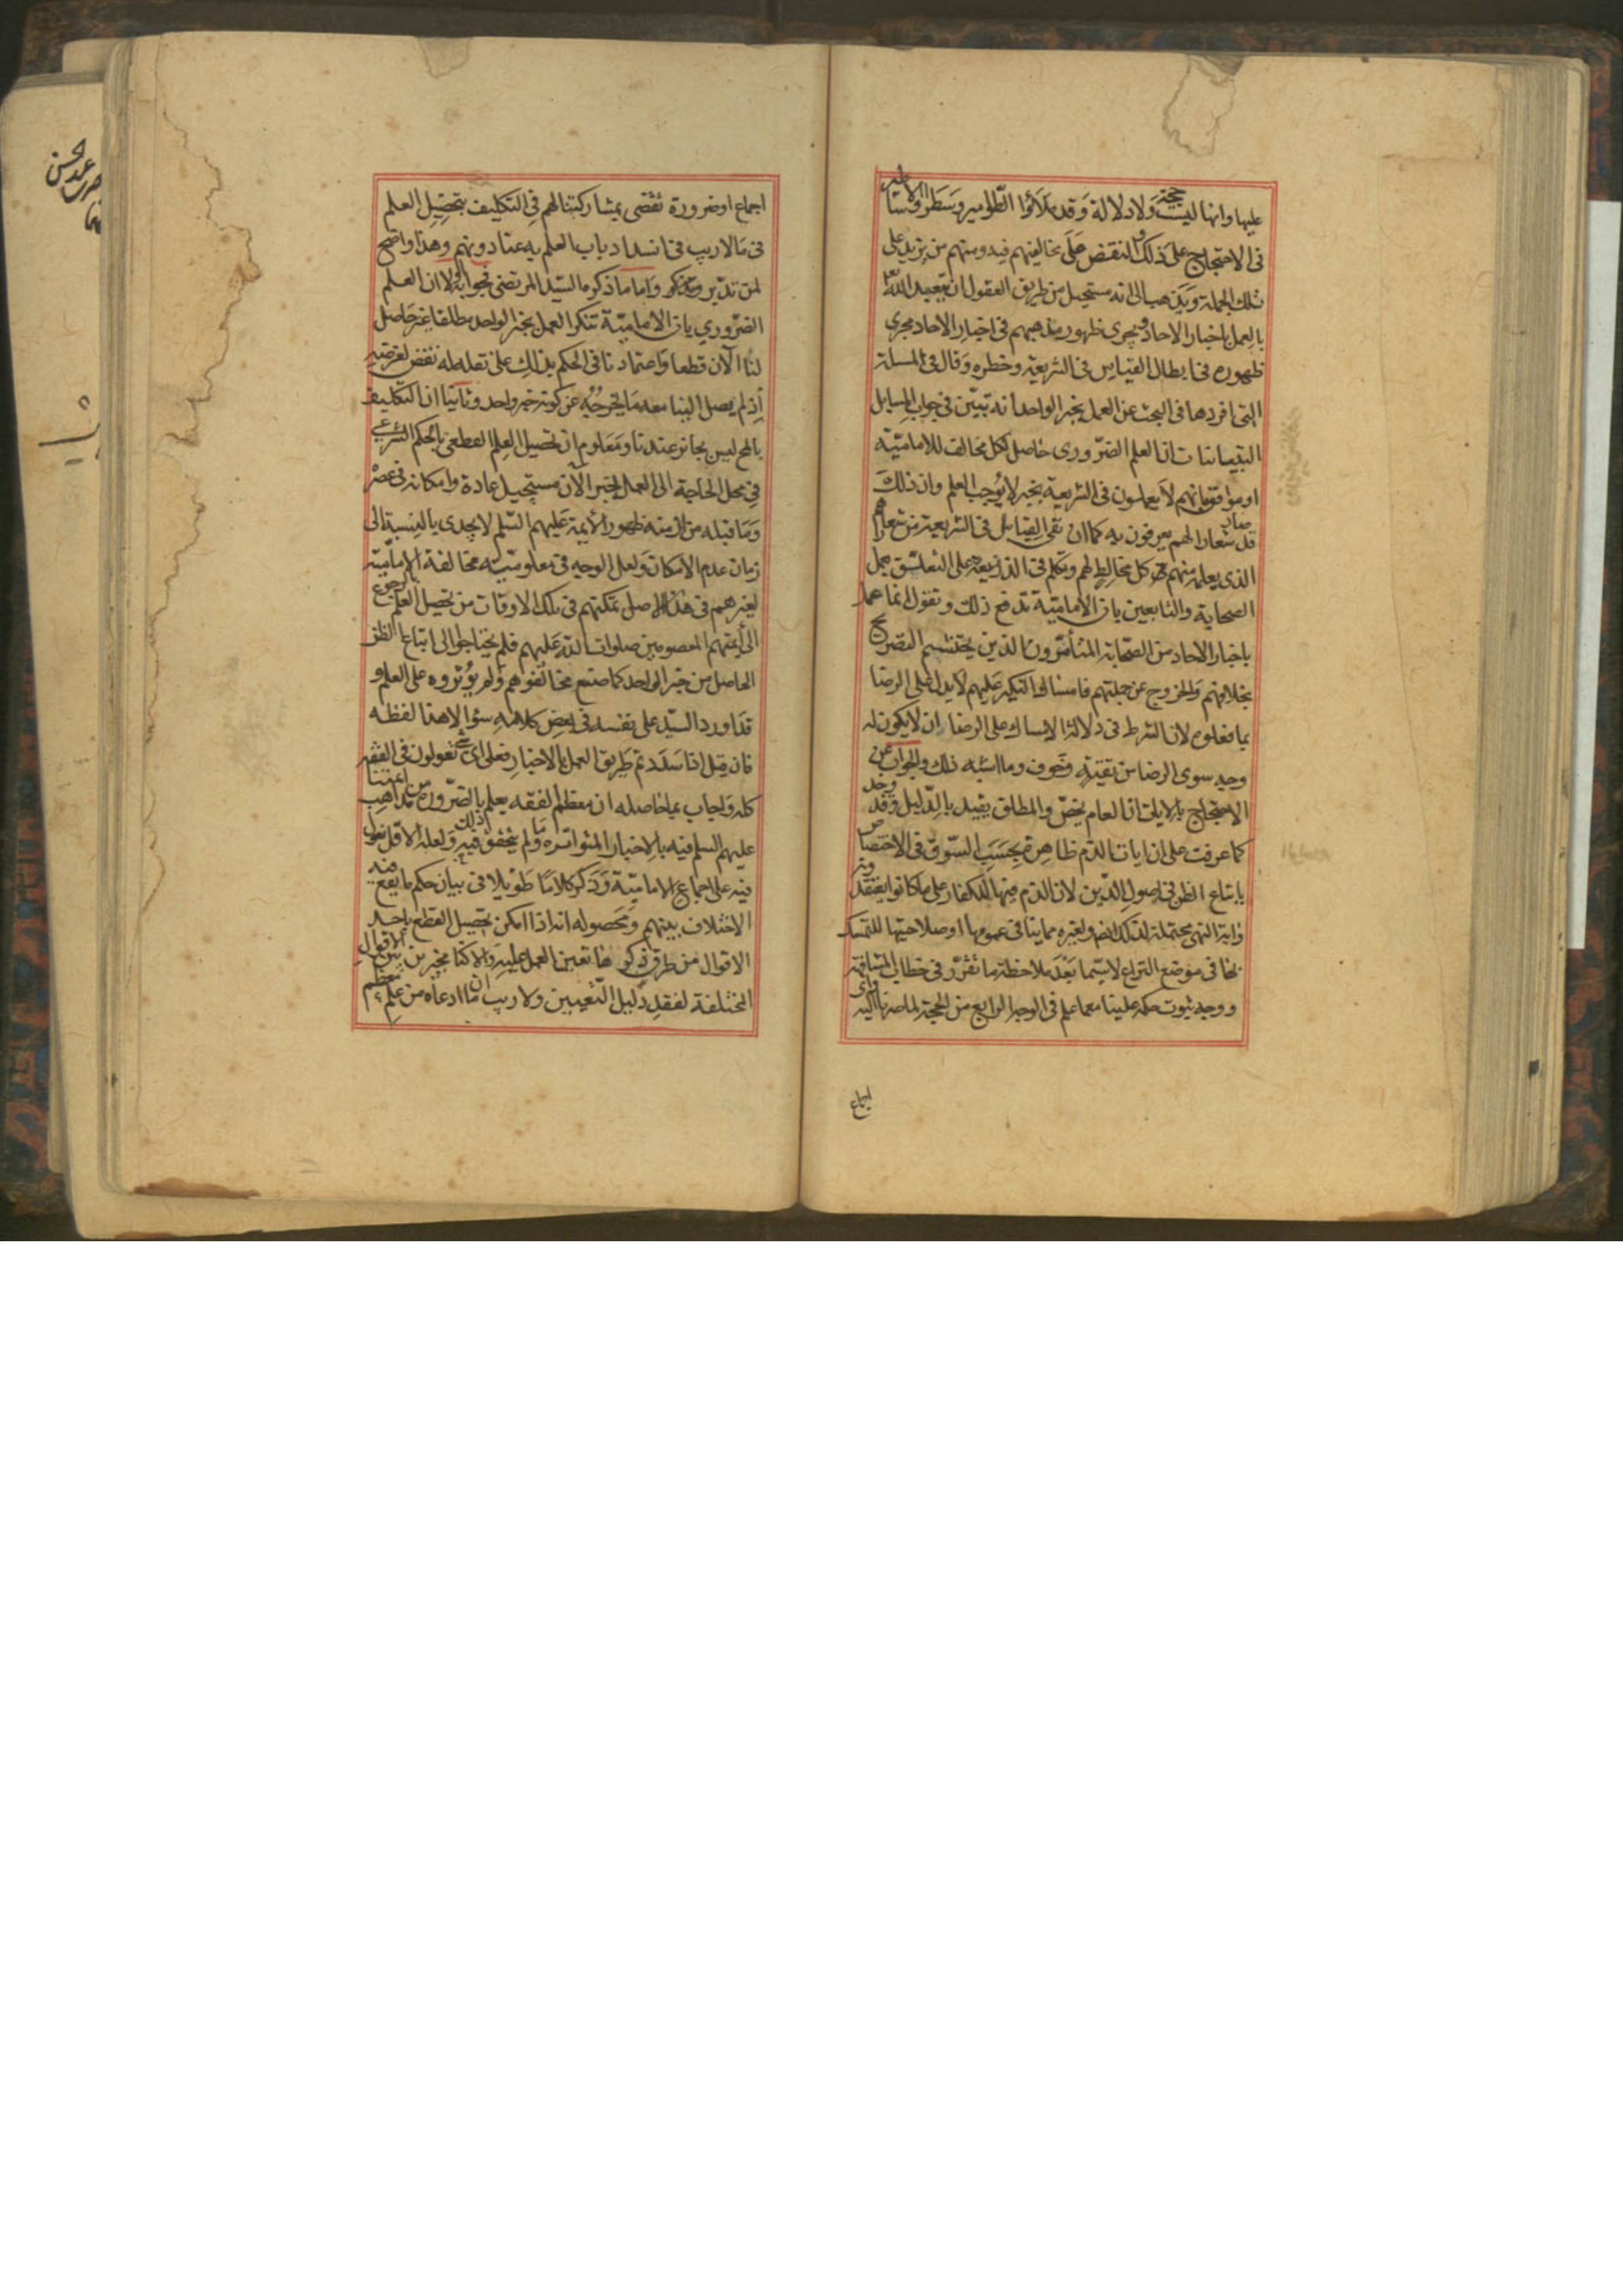 عليها وانها ليست بحجة ولا دلالة وقد ملاؤا الطوامير وسطروا الاساطير
فى الاحتجاج على ذلك والنقض على مخالفيهم فيه ومنهم من يزيد على
تلك الجملة ويذهب الى انه مستحيل من طريق العقول ان يتعبد الله
بالعمل باخبار الاحاد ويجرى ظهور مذهبهم فى اخبار الاحاد مجرى
ظهوره فى ابطال القياس فى الشريعة وحظره وقال فى المسئلة
التى افردها فى البحث عن العمل بخبر الواحد انه تبين فى جواب المسايل
التبانيات ان العلم الضرورى حاصل لكل مخالف للامامية
او موافق بانهم لا يعملون فى الشريعة بخبر لا يوجب العلم وان ذلك
قد صار شعارا لهم يعرفون به كما ان نفى القياس فى الشريعة من شعارهم
الذى يعلمه منهم كل مخالط لهم وتكلم فى الذريعة على التعلق بعمل
الصحابة والتابعين بان الامامية تدفع ذلك وتقول انما عمل
باخبار الاحاد من الصحابة المتأمرون الذين يحتشم التصريح
بخلافهم والخروج عن جملتهم فامساك النكير عليهم لا يدل على الرضا
بما فعلوه لان الشرط فى دلالة الامساك على الرضا ان لا يكون له
وجه سوى الرضا من تقية وخوف وما اشبه ذلك والجواب عن
الاحتجاج بالايات ان العام يخص والمطلق يقيد بالدليل وقد وجد
كما عرفت على ان ايات الذم ظاهرة بحسب السوق فى الاختصاص
باتباع الظن فى اصول الدين لان الذم فيها للكفار على ما كانوا يعتقدونه
واية النهى محتملة لذلك ايضا ولغيره مما ينافى عمومها او صلاحيتها للتمسك
بها فى موضع النزاع لا سيما بعد ملاحظة ما تقرر فى خطاب المشافهة
ووجه ثبوت حكمه علينا مما علم فى الوجه الرابع من الحجة لما صرنا اليه واى
اجماع
اجماع او ضرورة تقضى بمشاركتنا لهم فى التكليف بتحصيل العلم
فى ما لا ريب فى انسداد باب العلم به عنا دونهم وهذا واضح
لمن تدبر وتذكر واما ما ذكره السيد المرتضى فجوابه اولا ان العلم
الضرورى بان الامامية تنكر العمل بخبر الواحد مطلقا غير حاصل
لنا الآن قطعا واعتمادنا فى الحكم بذلك على نقله له نقض لغرضه
اذ لم يصل الينا معه ما يخرجه عن كونه خبر واحد وثانيا ان التكليف
بالمح ليس بجائز عندنا ومعلوم ان تحصيل العلم القطعى بالحكم الشرعى
فى محل الحاجة الى العمل بخبر الآن مستحيل عادة وامكانه فى عصره
وما قبله من ازمنة ظهور الايمة عليهم السلم لا يجدى بالنسبة الى
زمان عدم الامكان ولعل الوجه فى معلومية مخالفة الامامية
لغيرهم فى هذا الاصل تمكنهم فى تلك الاوقات من تحصيل العلم بالرجوع
الى ائمتهم المعصومين صلوات الله عليهم فلم يحتاجوا الى اتباع الظن
الحاصل من خبر الواحد كما صنع مخالفوهم ولم يؤثروه على العلم و
قد اورد السيد على نفسه فى بعض كلامه سؤالا هذا لفظه
فان قيل اذا سددتم طريق العمل بالاخبار فعلى اى شئ تعولون فى الفقه
كله واجاب بما حاصله ان معظم الفقه يعلم بالضرورة من مذاهب ائمتنا
عليهم السلم فيه بالاخبار المتواترة وما لم يتحقق ذلك فيه ولعله الاقل نعول
فيه على اجماع الامامية وذكر كلاما طويلا فى بيان حكم ما يقع فيه
الاختلاف بينهم ومحصوله انه اذا امكن تحصيل القطع باحد
الاقوال من طرق ذكرها تعين العمل عليه والا كنا مخيرين بين الاقوال
المختلفة لفقد دليل التعيين ولا ريب ان ما ادعاه من علم معظم